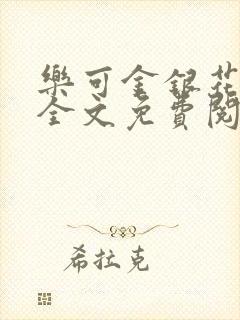 樂可金銀花
全文免費閱
希拉克